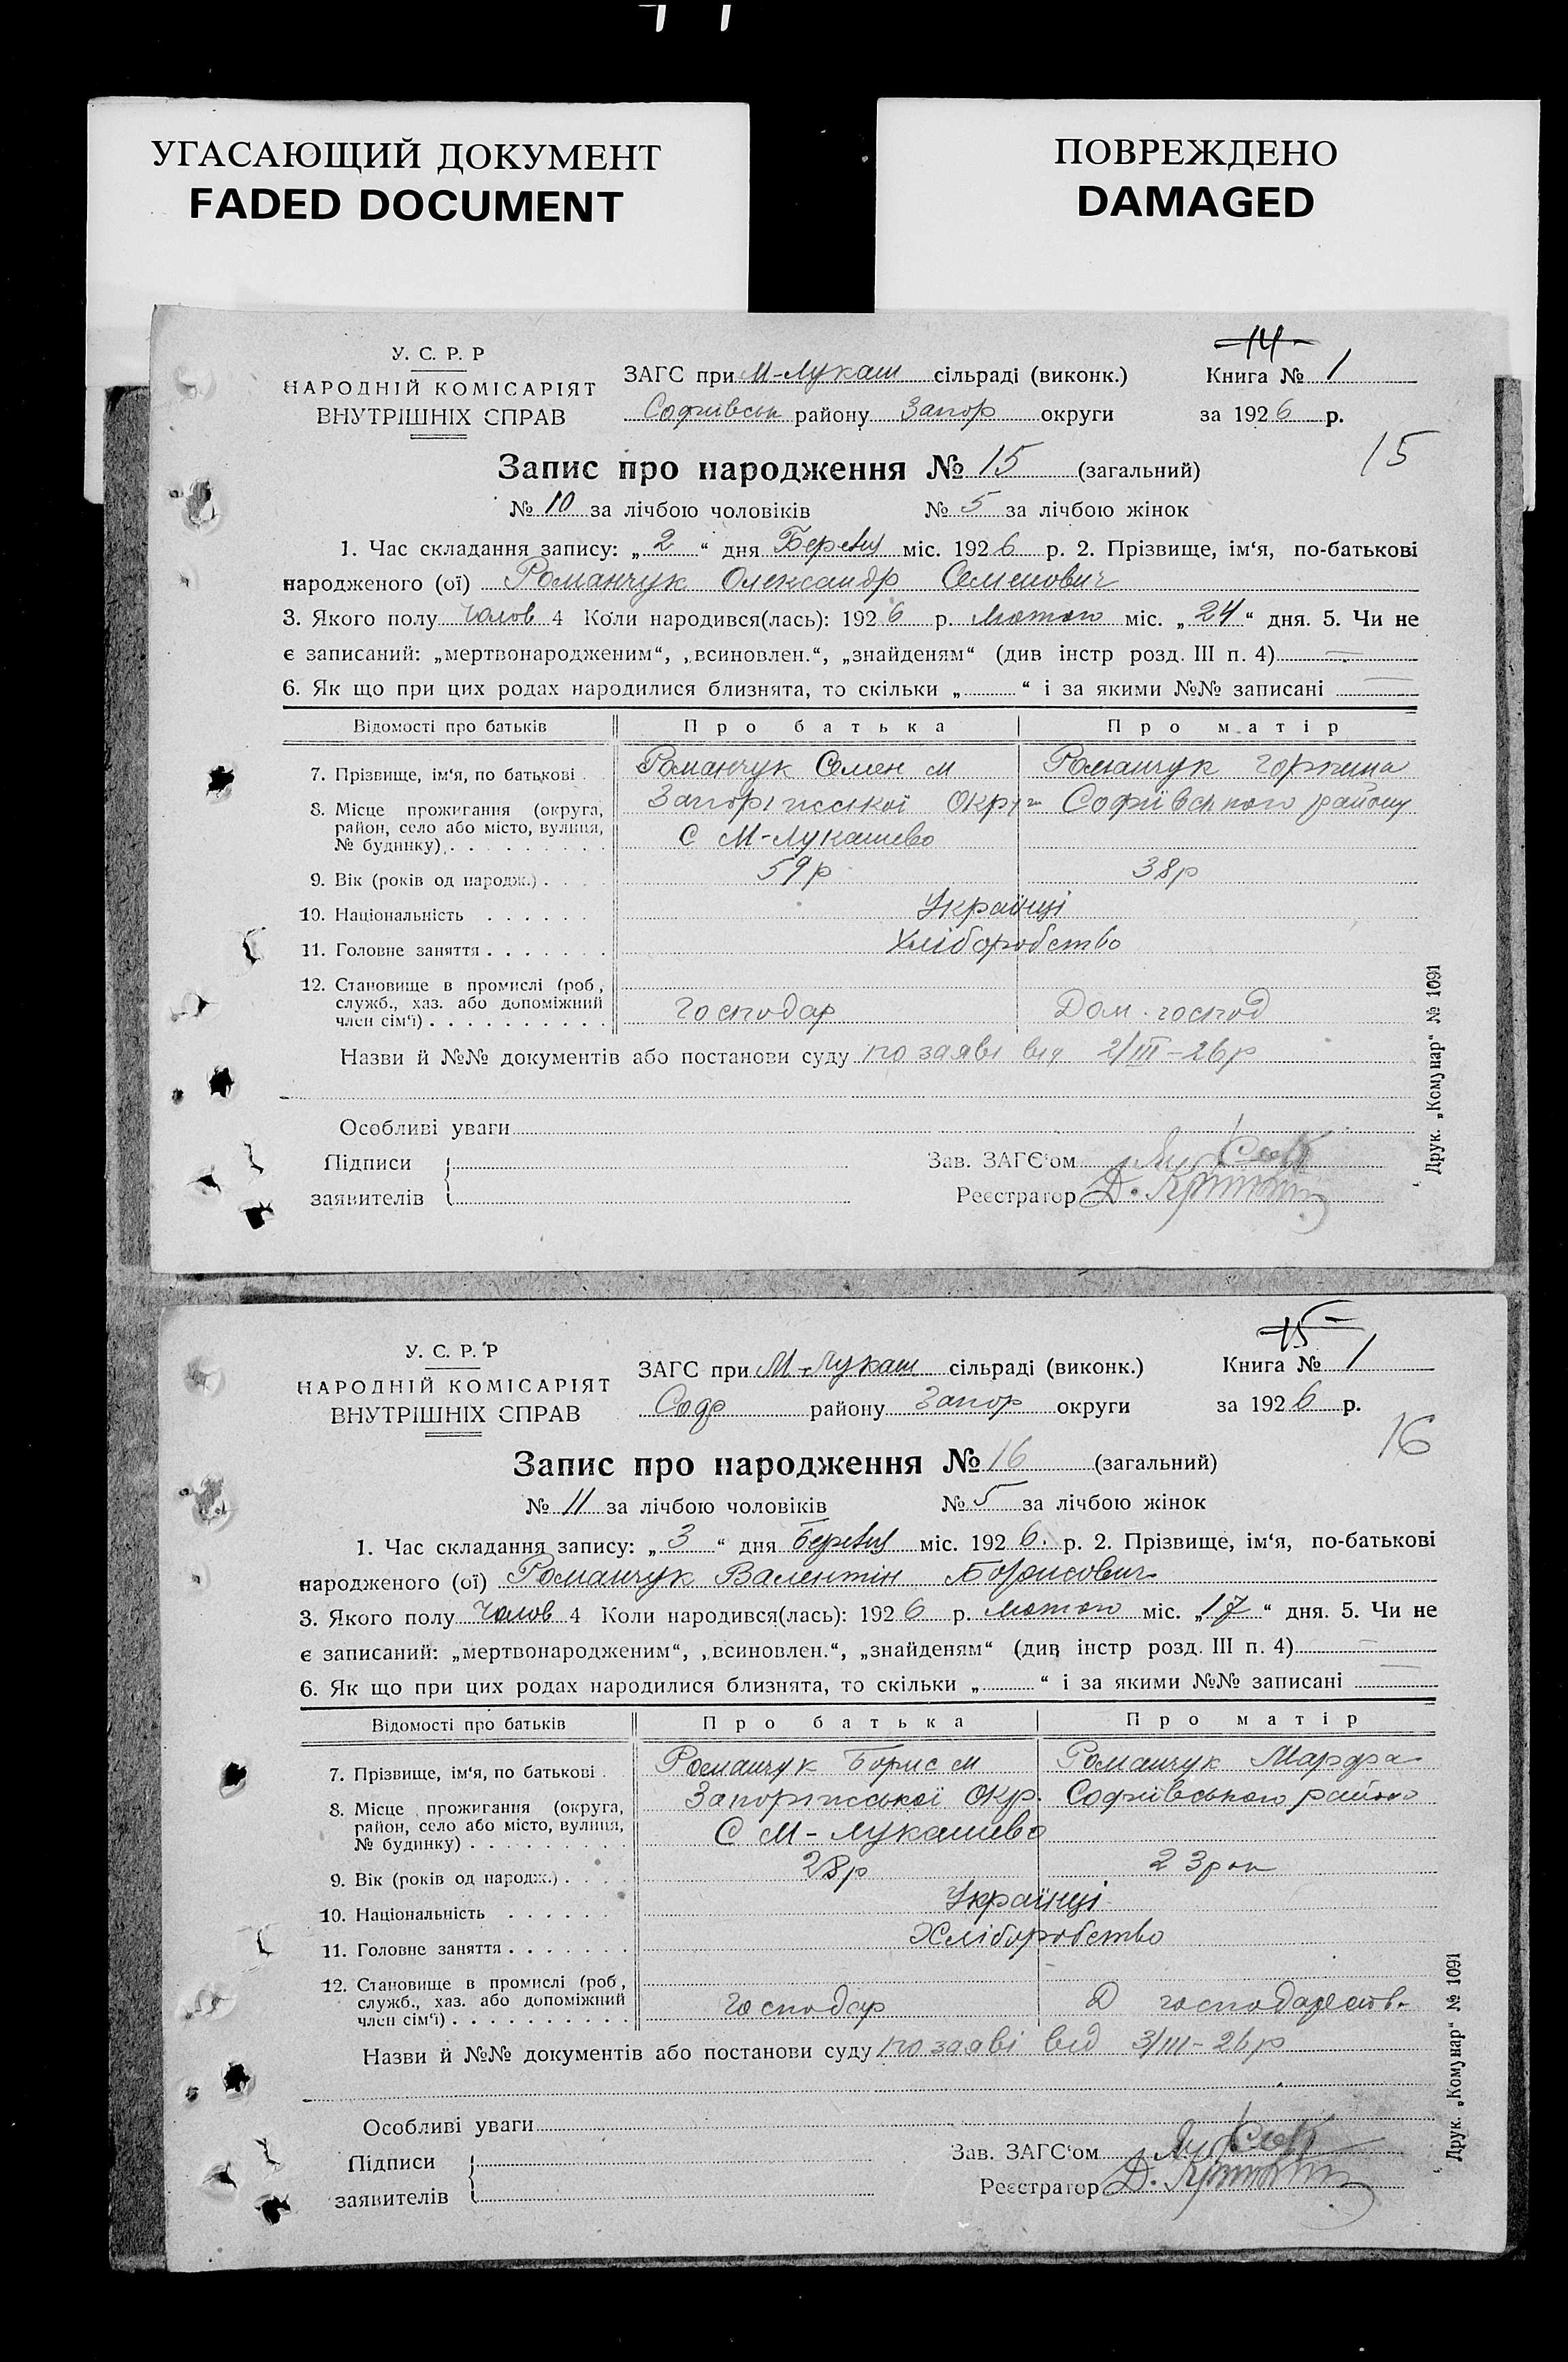 УГАСАЮЩИЙ ДОКУМЕНТ
FADED DOCUMENT
ПОВРЕЖДЕНО
DAMAGED
У. С. Р. Р
НАРОДНІЙ КОМІСАРІЯТ
ВНУТРІШНІХ СПРАВ
ЗАГС при М-Лукаш сільраді (виконк.)
Софиівськ району Запор округи
14
Книга № 1
за 1926 р.
15
Запис про народження № 15 (загальний)
№ 10 за лічбою чоловіків № 5 за лічбою жінок
1. Час складання запису: „ 2 “ дня міс. 1926 р. 2. Прізвище, ім‘я, по-батькові
народженого (ої) Романчук Олександр Семенович
3. Якого полу чолов 4 Коли народився(лась): 1926 р. лютого міс. „ 24 “ дня. 5. Чи не
є записаний: „мертвонародженим“, „всиновлен.“, „знайденям“ (див інстр розд. III п. 4)
6. Як що при цих родах народилися близнята, то скільки „ “ і за якими №№ записані
Відомості про батьків Про батька Про матір
7. Прізвище, ім‘я, по батькові Романчук Семен М Романчук Горпина
8. Місце прожигання (округа, район, село або місто, вулиця, № будинку) Запоріжської Окр Софиівського району
С М-Лукашево
9. Вік (років од народж.) 59р 38р
10. Національність Українці
11. Головне заняття Хліборобство
12. Становище в промислі (роб, служб., хаз. або допоміжний член сім‘ї) Господар Дом. господ
Назви й №№ документів або постанови суду по заяві від 2/III-26р
Особливі уваги
Підписи
заявителів
Зав. ЗАГС‘ом
Реєстратор
Друк. „Комунар“ № 1091
У. С. Р. Р
НАРОДНІЙ КОМІСАРІЯТ
ВНУТРІШНІХ СПРАВ
ЗАГС при М-Лукаш сільраді (виконк.)
Соф району Запор округи
15
Книга № 1
за 1926 р.
16
Запис про народження № 16 (загальний)
№ 11 за лічбою чоловіків № 5 за лічбою жінок
1. Час складання запису: „ 3 “ дня міс. 1926. р. 2. Прізвище, ім‘я, по-батькові
народженого (ої) Романчук Валентін Борисович
3. Якого полу чолов 4 Коли народився(лась): 1926 р. лютого міс. „ 17 “ дня. 5. Чи не
є записаний: „мертвонародженим“, „всиновлен.“, „знайденям“ (див інстр розд. III п. 4)
6. Як що при цих родах народилися близнята, то скільки „ “ і за якими №№ записані
Відомості про батьків Про батька Про матір
7. Прізвище, ім‘я, по батькові Романчук Борис М Романчук Марфа
8. Місце прожигання (округа, район, село або місто, вулиця, № будинку) Запоріжської Окр. Софиівського району
С М-Лукашево
9. Вік (років од народж.) 28р 23рок
10. Національність Українці
11. Головне заняття Хліборобство
12. Становище в промислі (роб, служб., хаз. або допоміжний член сім‘ї) Господар Д
Назви й №№ документів або постанови суду по заяві від 3/III-26р
Особливі уваги
Підписи
заявителів
Зав. ЗАГС‘ом
Реєстратор
Друк. „Комунар“ № 1091